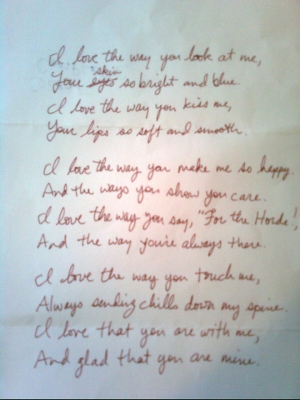 I love the way you look at me,
Your eyes skin so bright and blue.
I love the way you kiss me,
Your lips so soft and smooth.
I love the way you make me so happy.
And the ways you show you care.
I love the way you say, "For the Horde",
And the way you're always there.
I love the way you touch me,
Always sending chills down my spine.
I love that you are with me,
And glad that you are mine.